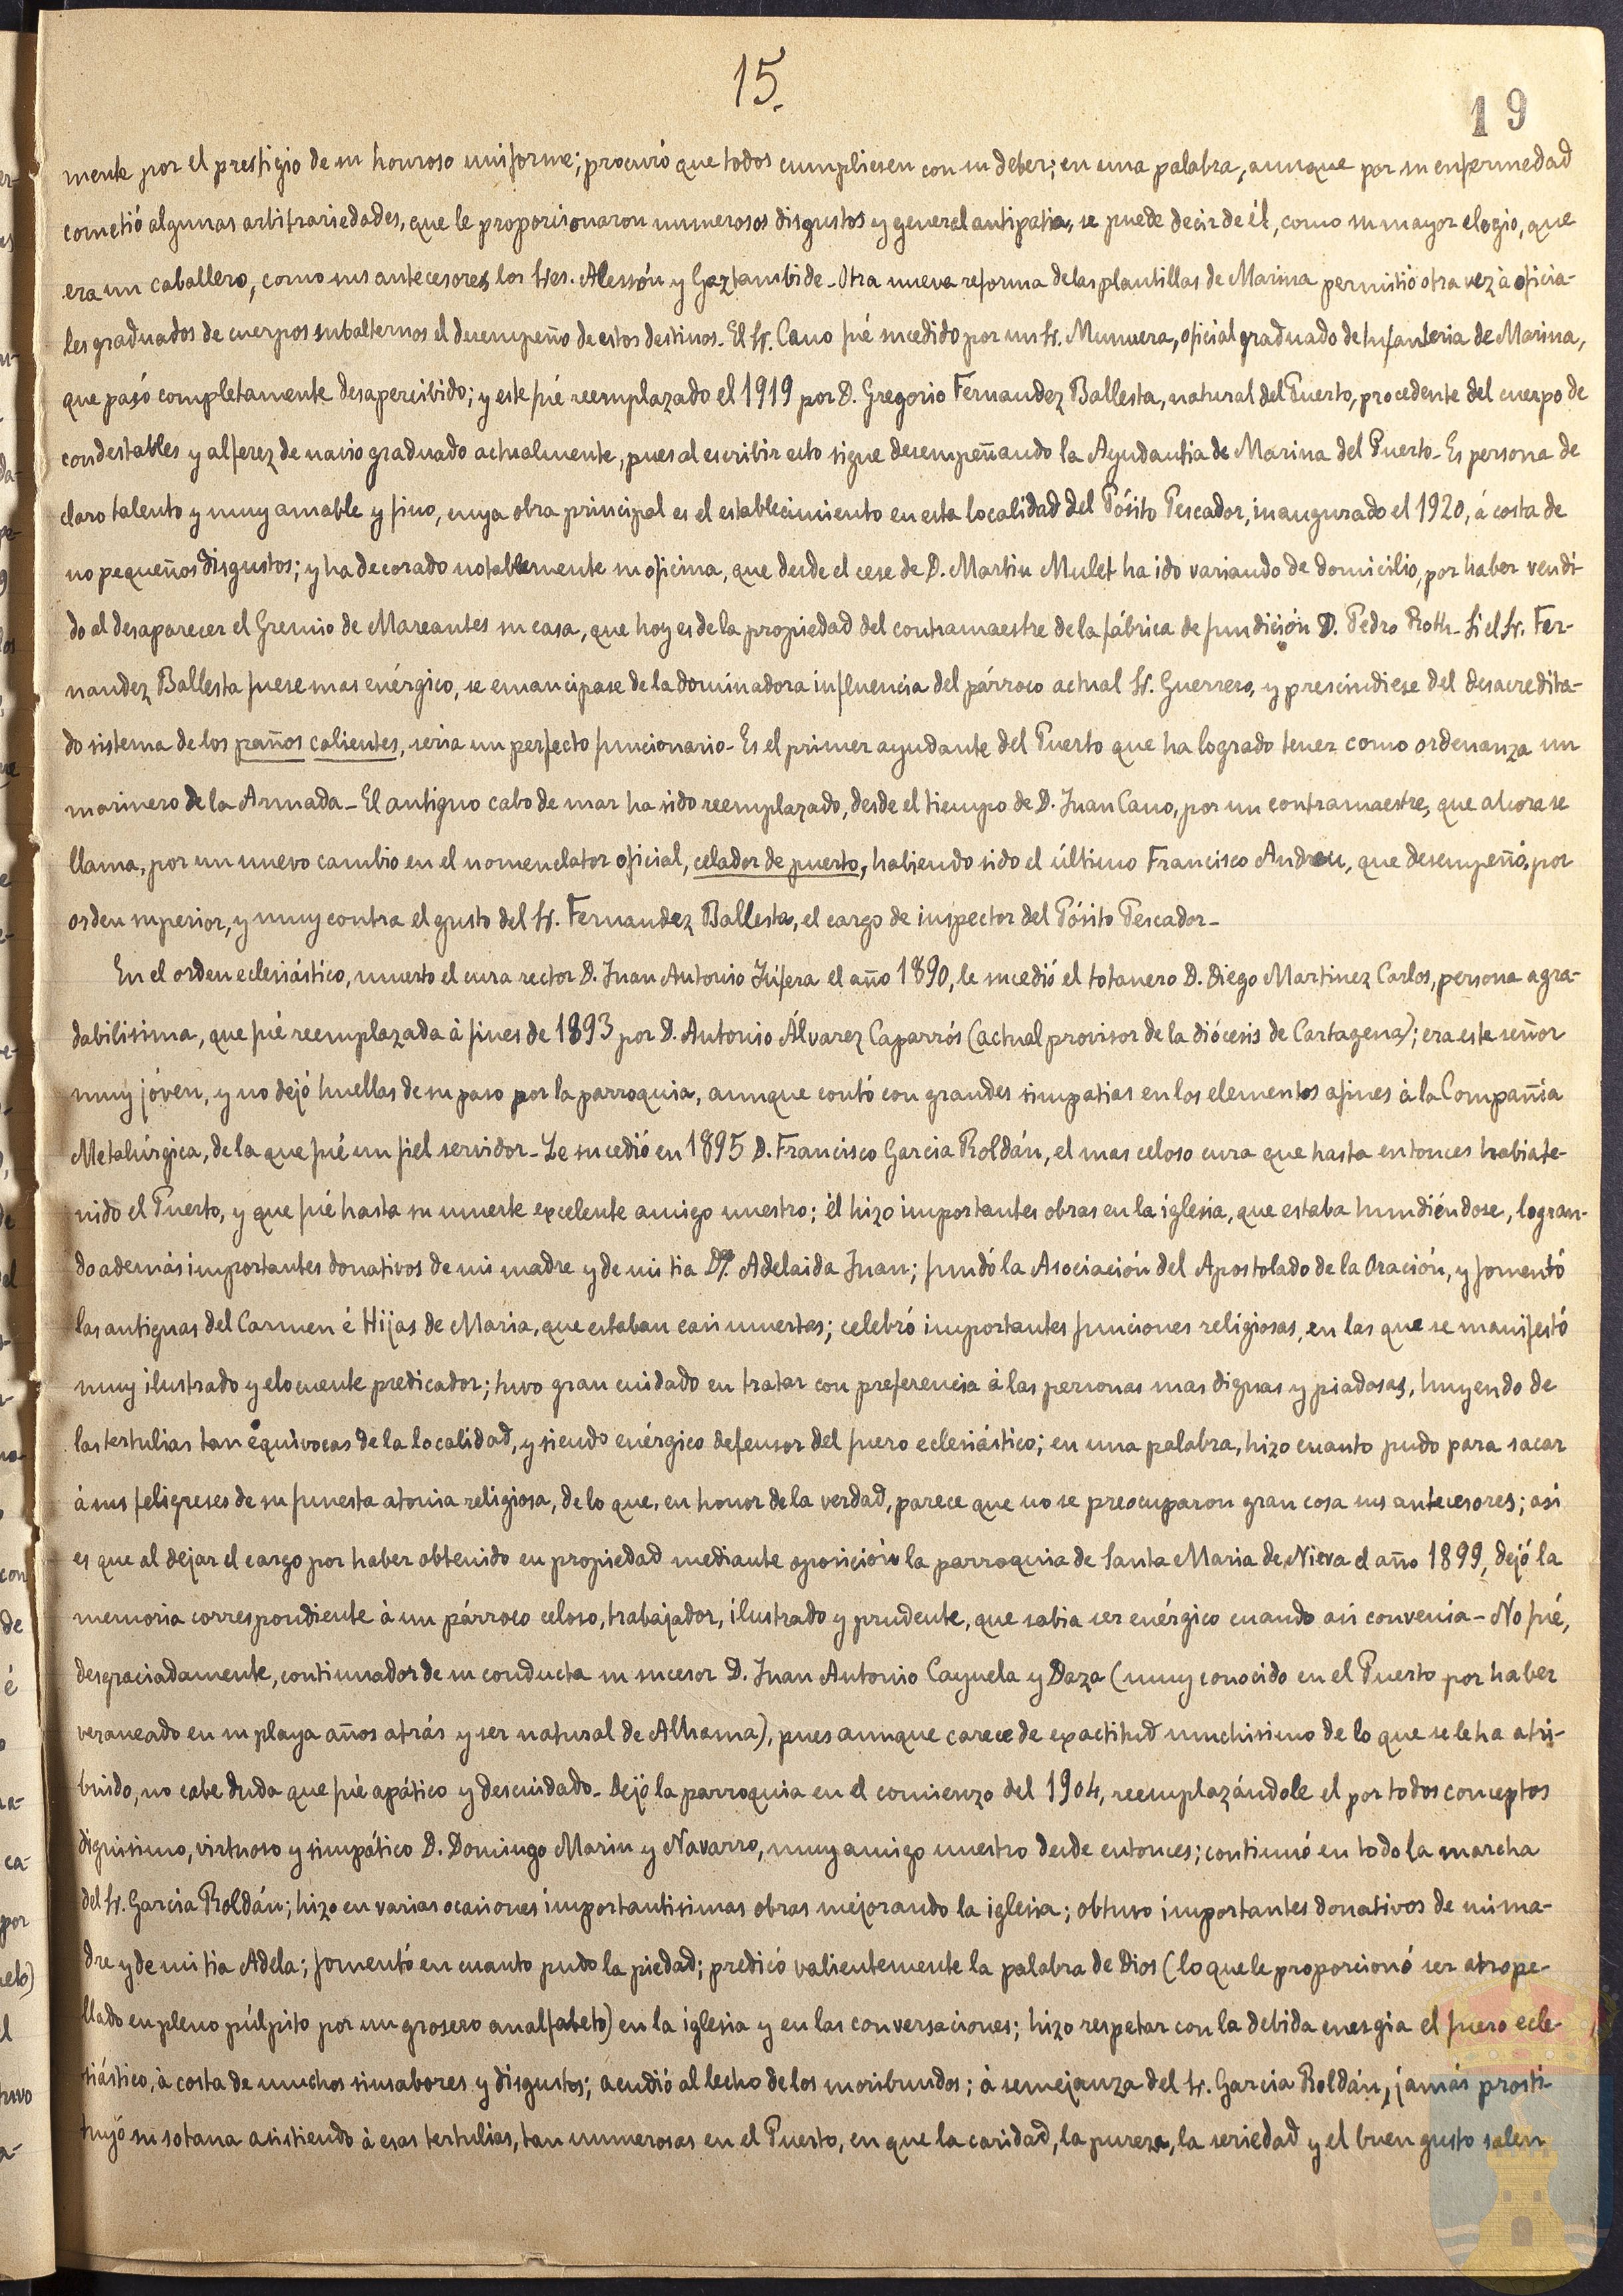 15.
19
mente por el prestigio de su honroso uniforme; procuró que todos cumpliesen con su deber; en una palabra, aunque por su enfermedad
cometió algunas arbitrariedades, que le proporcionaron numerosos disgustos y general antipatia, se puede decir de él, como su mayor elogio, que
era un caballero, como sus antecesores los Sres. Alessón y Gaztambide - Otra nueva reforma de las plantillas de Marina permitió otra vez à oficia-
les graduados de cuerpos subalternos el desempeño de estos destinos. El Sr. Cano fué sucedido por un Sr. Munuera, oficial graduado de Infanteria de Marina,
que pasó completamente desapercibido; y este fué reemplazado el 1919 por D. Gregorio Fernandez Ballesta, natural del Puerto, procedente del cuerpo de
condestables y alferez de navio graduado actualmente, pues al escribir esto sigue desempeñando la Ayudantia de Marina del Puerto - Es persona de
claro talento y muy amable y fino, cuya obra principal es el establecimiento en esta localidad del Pósito Pescador, inaugurado el 1920, á costa de
no pequeños disgustos; y ha decorado notablemente su oficina, que desde el cese de D. Martin Mulet ha ido variando de domicilio, por haber vendi-
do al desaparecer el Gremio de Mareantes su casa, que hoy es de la propiedad del contramaestre de la fábrica de fundición D. Pedro Roth - Si el Sr. Fer-
nandez Ballesta fuese mas enérgico, se emancipase de la dominadora influencia del párroco actual Sr. Guerrero, y prescindiese del desacredita-
do sistema de los paños calientes, seria un perfecto funcionario - Es el primer ayudante del Puerto que ha logrado tener como ordenanza un
marinero de la Armada - El antiguo cabo de mar ha sido reemplazado, desde el tiempo de D. Juan Cano, por un contramaestre, que ahora se
llama, por un nuevo cambio en el nomenclator oficial, celador de puerto, habiendo sido el último Francisco Andreu, que desempeñó, por
orden superior, y muy contra el gusto del Sr. Fernandez Ballesta, el cargo de inspector del Pósito Pescador -
En el orden eclesiástico, muerto el cura rector D. Juan Antonio Júfera el año 1890, le sucedió el totanero D. Diego Martinez Carlos, persona agra-
dabilisima, que fué reemplazada à fines de 1893 por D. Antonio Álvarez Caparrós (actual provisor de la diócesis de Cartagena); era este señor
muy jóven, y no dejó huellas de su paso por la parroquia, aunque contó con grandes simpatias en los elementos afines à la Compañia
Metalúrgica, de la que fué un fiel servidor - Le sucedió en 1895 D. Francisco Garcia Roldán, el mas celoso cura que hasta entonces habia te-
nido el Puerto, y que fué hasta su muerte excelente amigo nuestro; él hizo importantes obras en la iglesia, que estaba hundiéndose, logran-
do además importantes donativos de mi madre y de mi tia Dª. Adelaida Juan; fundó la Asociación del Apostolado de la Oración, y fomentó
las antiguas del Carmen é Hijas de Maria, que estaban casi muertas; celebró importantes funciones religiosas, en las que se manifestó
muy ilustrado y elocuente predicador; tuvo gran cuidado en tratar con preferencia à las personas mas dignas y piadosas, huyendo de
las tertulias tan equivocas de la localidad, y siendo enérgico defensor del fuero eclesiástico; en una palabra, hizo cuanto pudo para sacar
á sus feligreses de su funesta atonia religiosa, de lo que, en honor de la verdad, parece que no se preocuparon gran cosa sus antecesores; asi
es que al dejar el cargo por haber obtenido en propiedad mediante oposición la parroquia de Santa Maria de Nieva el año 1899, dejó la
memoria correspondiente à un párroco celoso, trabajador, ilustrado y prudente, que sabia ser enérgico cuando asi convenia - No fué,
desgraciadamente, continuador de su conducta su sucesor D. Juan Antonio Cayuela y Daza (muy conocido en el Puerto por haber
veraneado en su playa años atrás y ser natural de Alhama), pues aunque carece de exactitud muchisimo de lo que se le ha atri-
buido, no cabe duda que fué apático y descuidado - Dejó la parroquia en el comienzo del 1904, reemplazándole el por todos conceptos
dignisimo, virtuoso y simpático D. Domingo Marin y Navarro, muy amigo nuestro desde entonces; continuó en todo la marcha
del Sr. Garcia Roldán; hizo en varias ocasiones importantisimas obras mejorando la iglesia; obtuvo importantes donativos de mi ma-
dre y de mi tia Adela; fomentó en cuanto pudo la piedad; predicó valientemente la palabra de Dios (lo que le proporcionó ser atrope-
llado en pleno púlpito por un grosero analfabeto) en la iglesia y en las conversaciones; hizo respetar con la debida energia el fuero ecle-
siástico, à costa de muchos sinsabores y disgustos; acudió al lecho de los moribundos; à semejanza del Sr. Garcia Roldán, jamás prosti-
tuyó su sotana asistiendo à esas tertulias, tan numerosas en el Puerto, en que la caridad, la pureza, la seriedad y el buen gusto salen